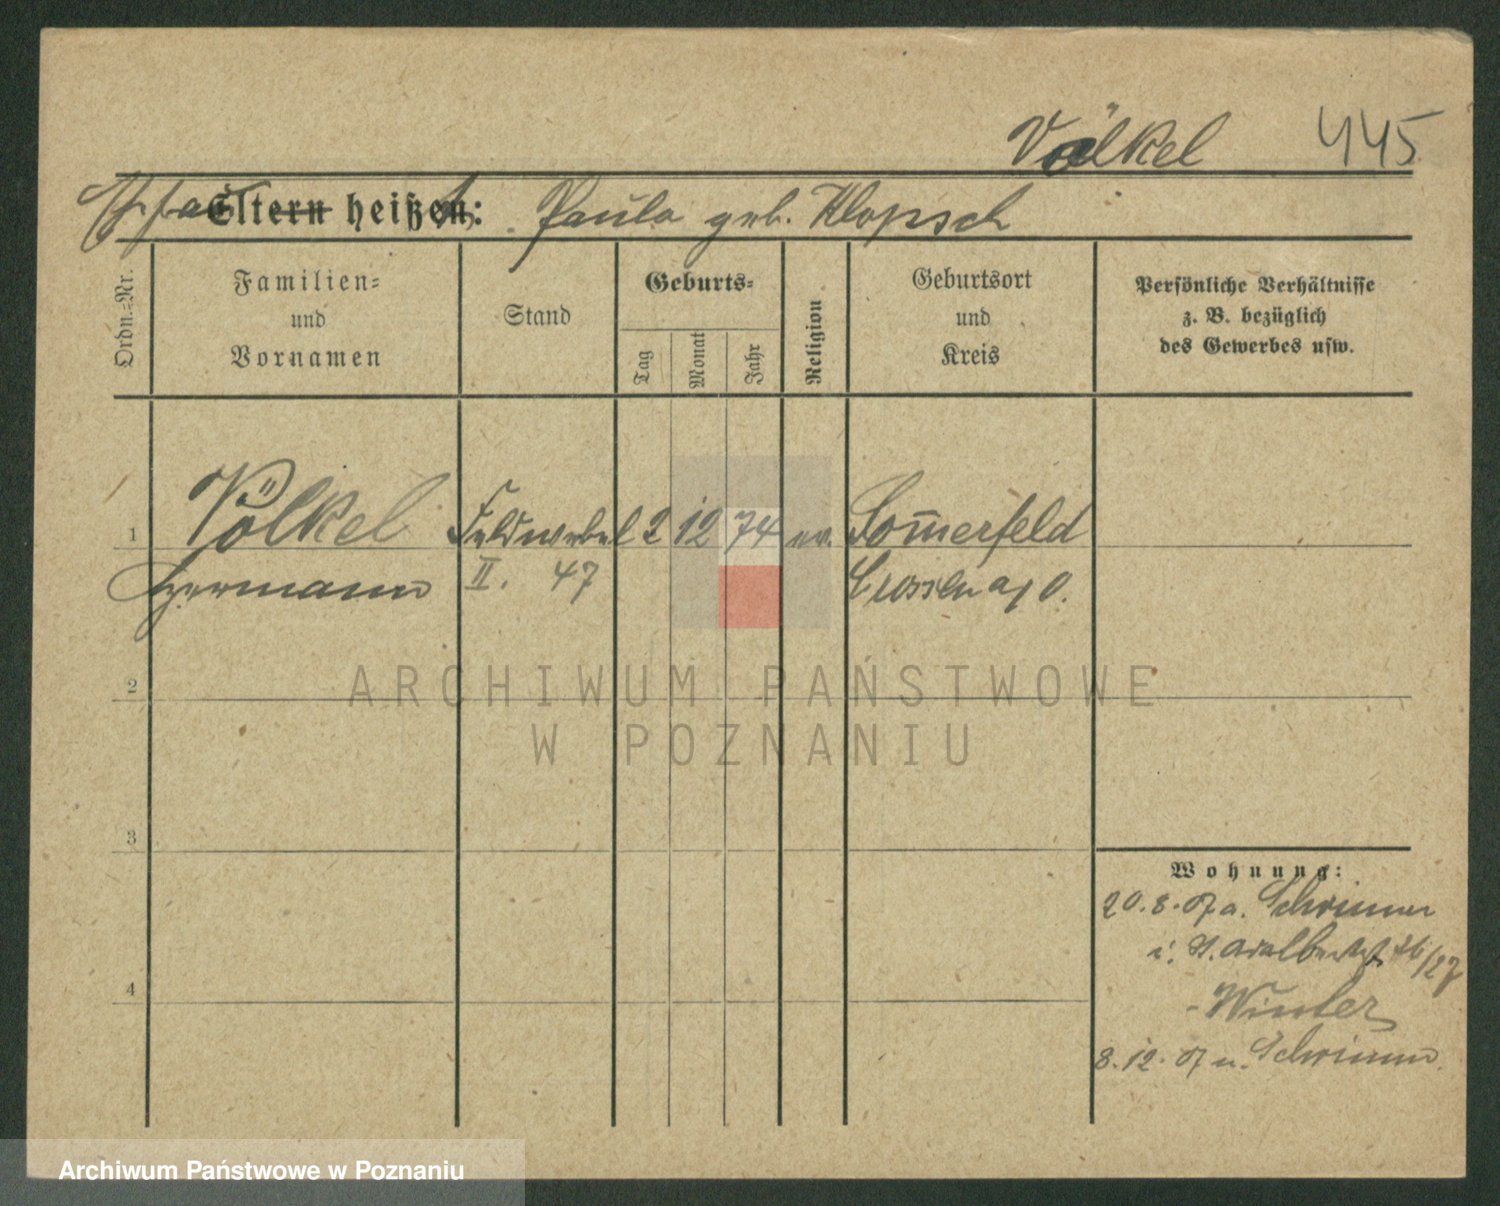 Völkel 445
Eltern heißen: Paula geb. Klopsch
Ordn.-Nr.
Familien-
und
Vornamen
Stand
Geburts-
Tag
Monat
Jahr
Religion
Geburtsort
und
Kreis
Persönliche Verhältnisse
z. B. bezüglich
des Gewerbes usw.
1 Völkel Feldwebel 2 12 74 ev. Som̅erfeld
Hermann II. 47 Crossen a/O.
2
ARCHIWUM PAŃSTWOWE
W POZNANIU
3
4
Wohnung:
20.8.07 a.
i. St. Adalbertst. 26/27
- Winter
8.12.07 n.
Archiwum Państwowe w Poznaniu